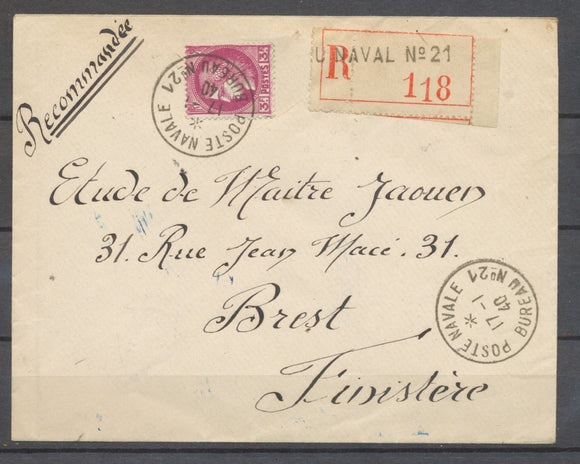 Recommandée
3F POSTES 3F
POSTE NAVALE
BUREAU Nº 21
17 -1
40
U NAVAL Nº 21
R
118
Etude de Maitre Jaouen
31. Rue Jean Macé. 31.
Brest
Finistère
POSTE NAVALE
BUREAU Nº 21
17 -1
40